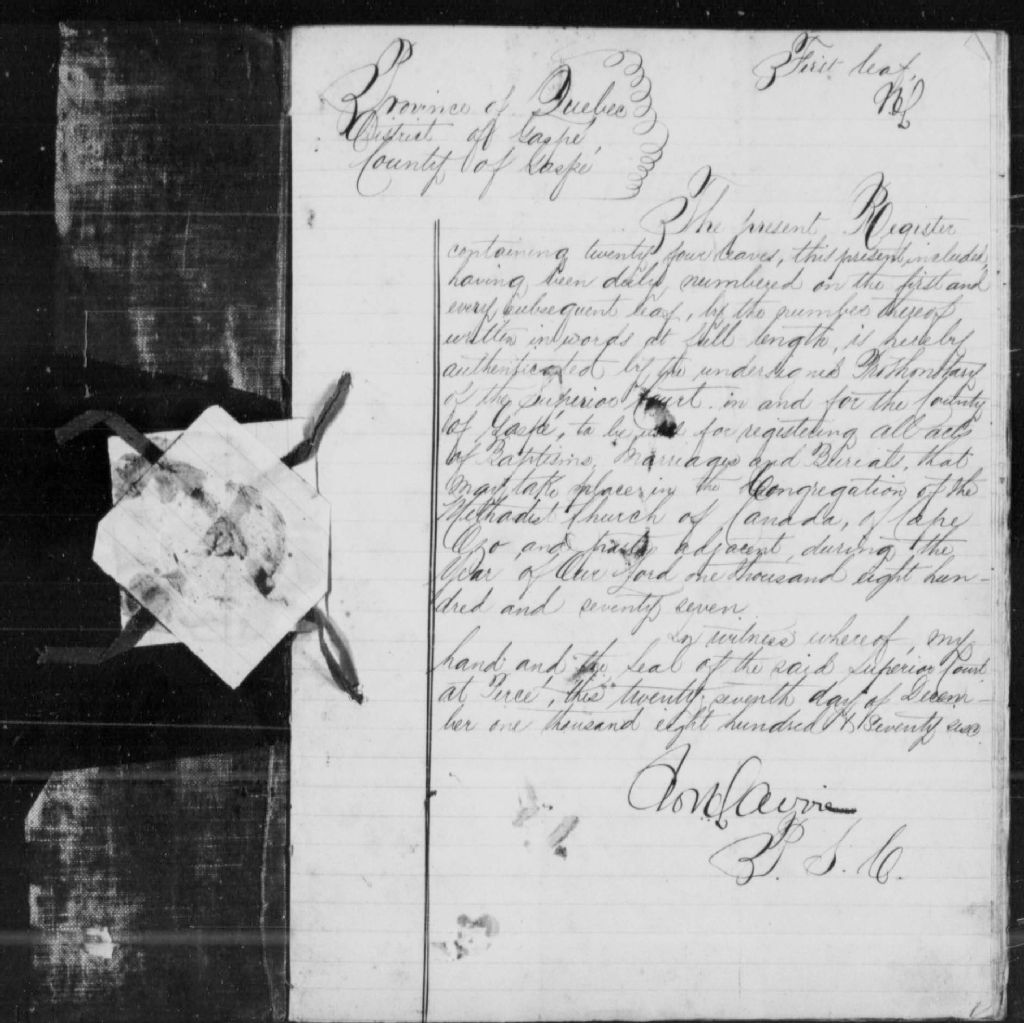 First leaf
Province of Quebec
District of Gaspé
County of Gaspé
The present Register
containing twenty four leaves, this present included,
having been duly numbered on the first and
every subsequent leaf, by the number thereof
written in words at full length, is hereby
authenticated by the undersigned Prothonotary
of the Superior Court in and for the County
of Gaspé, to be used for registering all acts
of Baptisms, Marriages and Burials, that
may take place in the Congregation of the
Methodist Church of Canada, of Cape
Ozo and parts adjacent, during the
Year of Our Lord one thousand eight hun-
dred and seventy seven
In witness whereof, my
hand and the Seal of the said Superior Court
at Percé, this twenty seventh day of Decem-
ber one thousand eight hundred & seventy six
P. S. C.